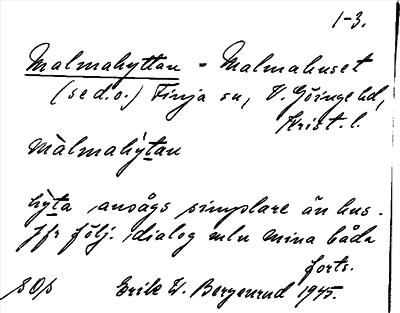 1-3.
Malmahyttan - Malmahuset
(se d.o.) Finja sn, V. Göinge hd,
Krist. l.
màlmahýtan
hỳta ansågs simplare än hus.
Jfr följ. dialog mln mina båda
forts.
Erik W. Bergenrud 1945.